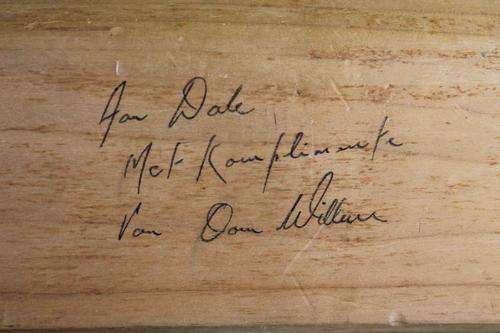 Aan Dale
Met Komplimente
Van Oom Willem